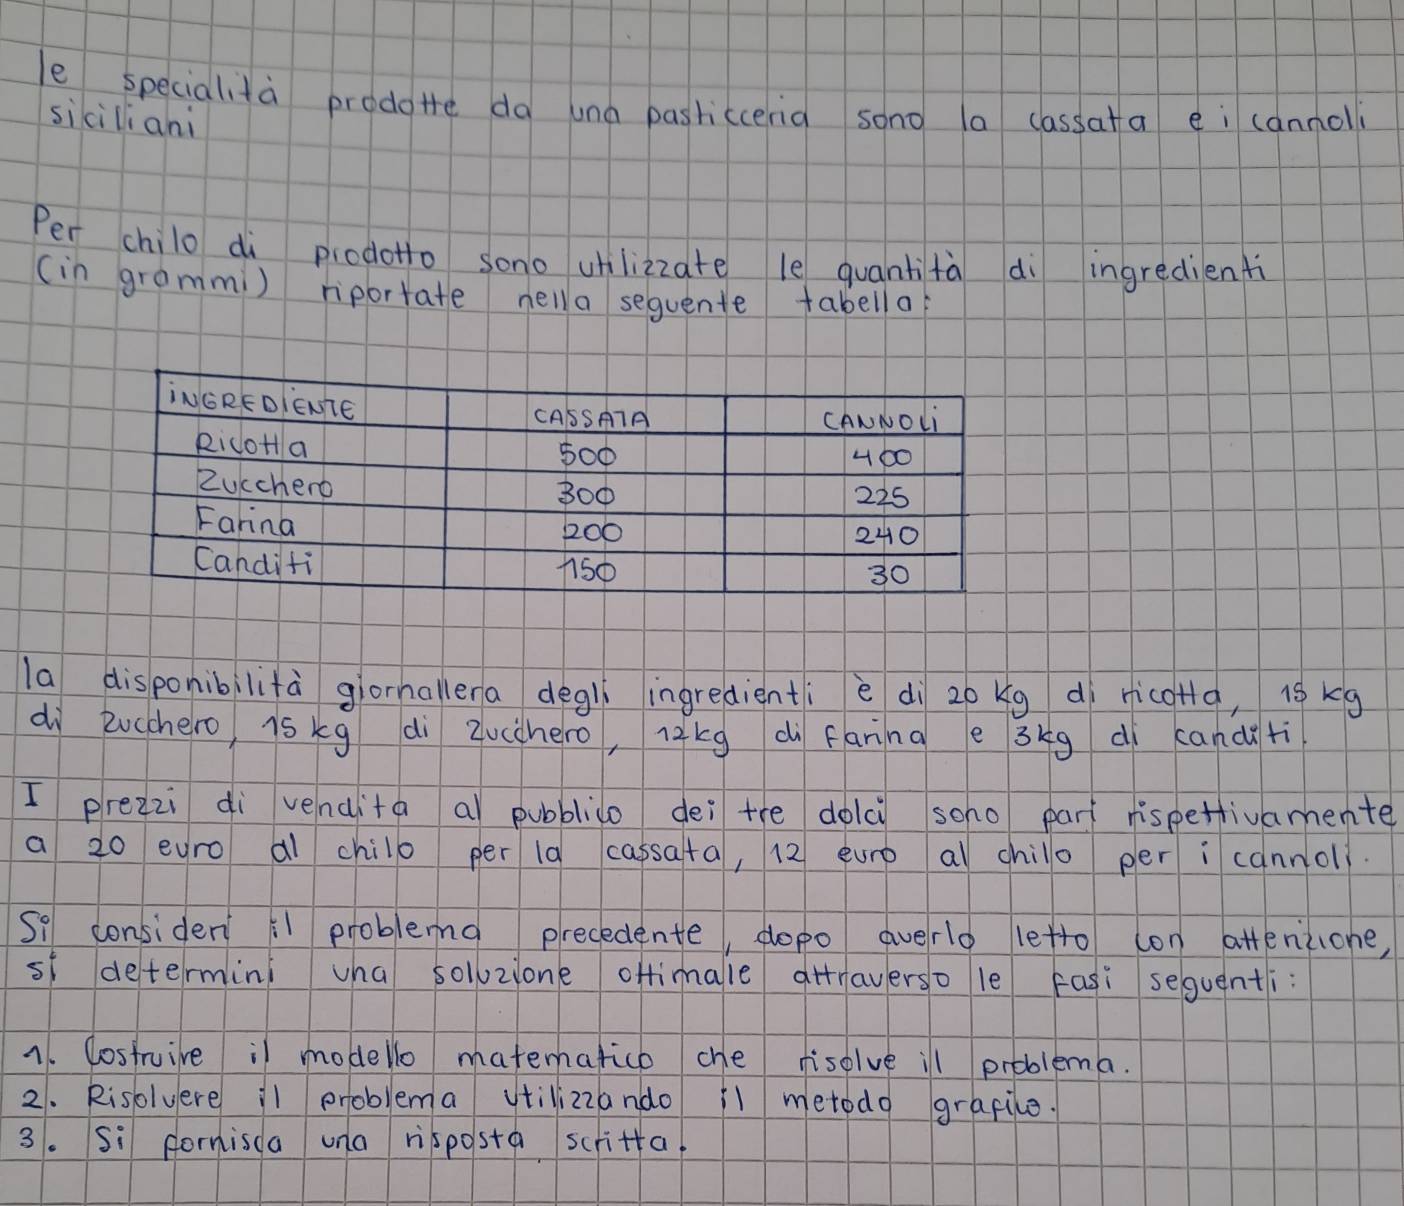 le specialità prodotte da una pasticceria sono la cassata e i cannoli
siciliani
Per chilo di prodotto sono utilizzate le quantità di ingredienti
(in grammi) riportate nella seguente tabella:
INGREDIENTE CASSATA CANNOLI
Ricotta 500 400
Zucchero 300 225
Farina 200 240
Canditi 150 30
la disponibilità giornallera degli ingredienti è di 20 kg di ricotta, 15 kg
di zucchero, 15 kg di zucchero, 12kg di farina e 3kg di canditi.
I prezzi di vendita al pubblico dei tre dolci sono pari rispettivamente
a 20 euro al chilo per la cassata, 12 euro al chilo per i cannoli.
Si consideri il problema precedente, dopo averlo letto con attenzione,
si determini una soluzione ottimale attraverso le fasi seguenti:
1. Costruire il modello matematico che risolve il problema.
2. Risolvere il problema utilizzando il metodo grafico.
3. Si fornisca una risposta scritta.